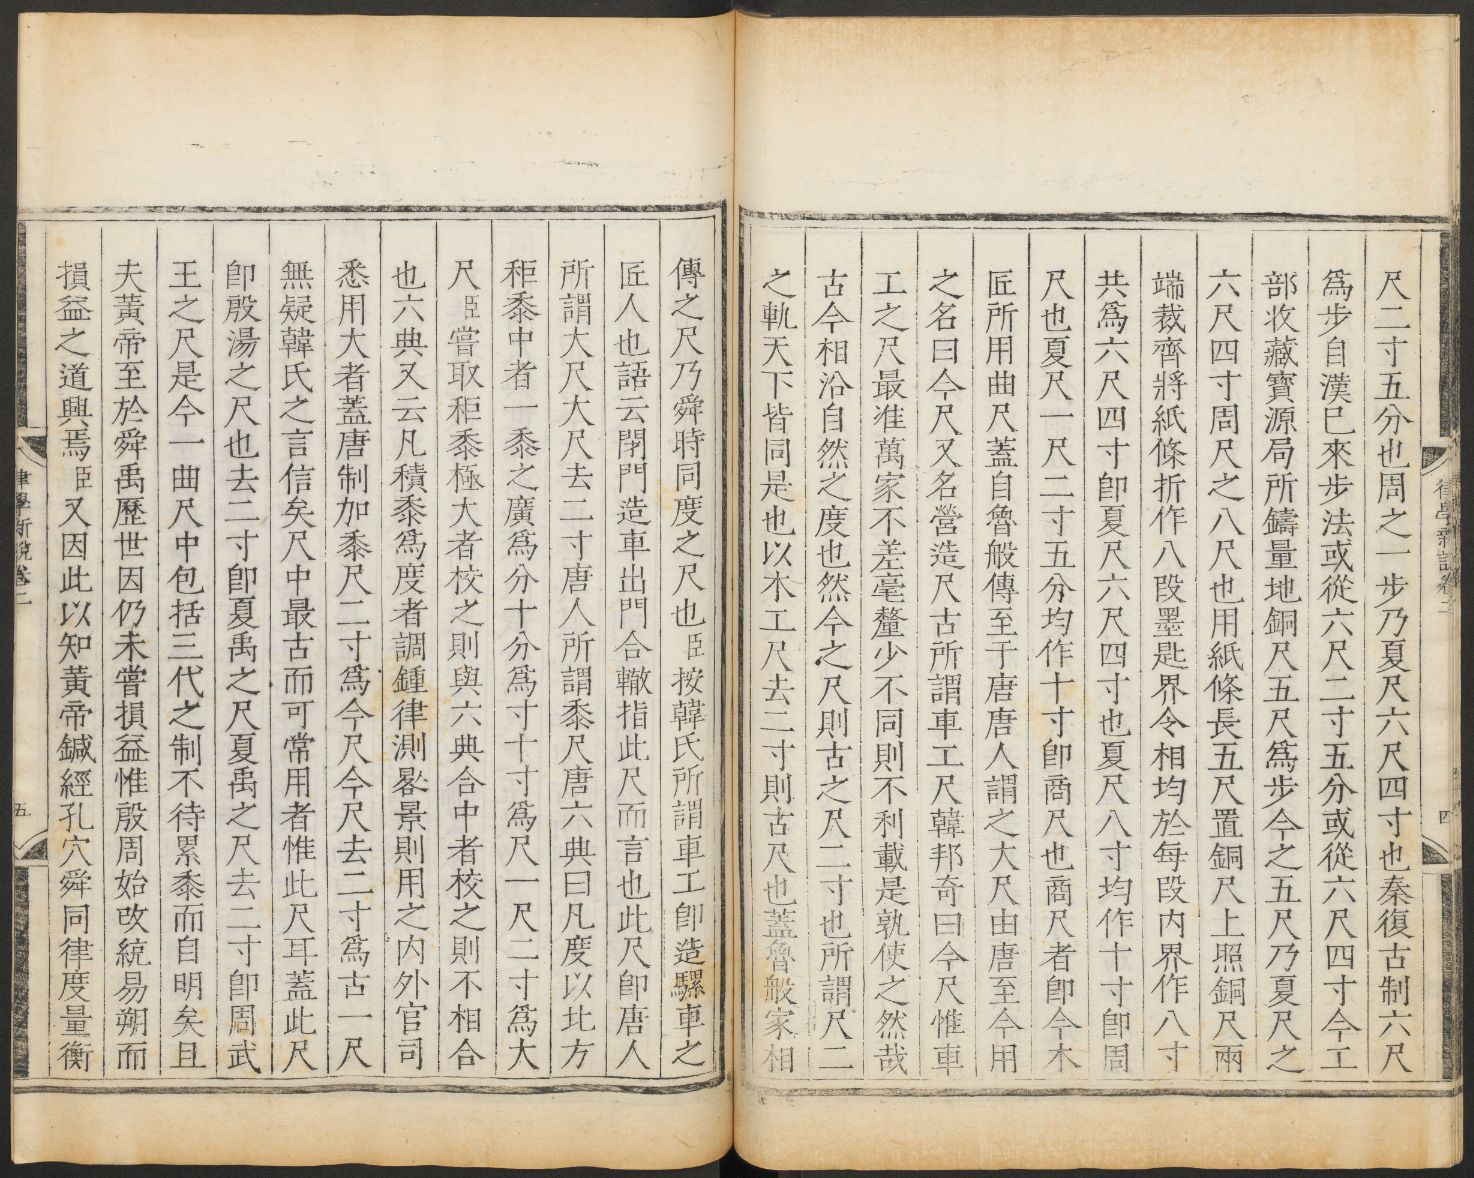 尺二寸五分也周之一步乃夏尺六尺四寸也秦復古制六尺
爲步自漢已來步法或從六尺二寸五分或從六尺四寸今工
部收藏寳源局所鑄量地銅尺五尺爲步今之五尺乃夏尺之
六尺四寸周尺之八尺也用紙條長五尺置銅尺上照銅尺兩
端裁齊將紙條折作八段墨匙界令相均於每段内界作八寸
共爲六尺四寸卽夏尺六尺四寸也夏尺八寸均作十寸卽周
尺也夏尺一尺二寸五分均作十寸卽商尺也商尺者卽今木
匠所用曲尺蓋自魯般傳至于唐唐人謂之大尺由唐至今用
之名曰今尺又名營造尺古所謂車工尺韓邦奇曰今尺惟車
工之尺最准萬家不差毫釐少不同則不利載是孰使之然哉
古今相沿自然之度也然今之尺則古之尺二寸也所謂尺二
之軌天下皆同是也以木工尺去二寸則古尺也蓋魯般家相
律學新說卷二
四
傳之尺乃舜時同度之尺也臣按韓氏所謂車工卽造騾車之
匠人也語云閉門造車出門合轍指此尺而言也此尺卽唐人
所謂大尺大尺去二寸唐人所謂黍尺唐六典曰凡度以北方
秬黍中者一黍之廣爲分十分爲寸十寸爲尺一尺二寸爲大
尺臣嘗取秬黍極大者校之則與六典合中者校之則不相合
也六典又云凡積黍爲度者調鍾律測晷景則用之内外官司
悉用大者蓋唐制加黍尺二寸爲今尺今尺去二寸爲古一尺
無疑韓氏之言信矣尺中最古而可常用者惟此尺耳蓋此尺
卽殷湯之尺也去二寸卽夏禹之尺夏禹之尺去二寸卽周武
王之尺是今一曲尺中包括三代之制不待累黍而自明矣且
夫黃帝至於舜禹歷世因仍未嘗損益惟殷周始改統易朔而
損益之道興焉臣又因此以知黃帝鍼經孔穴舜同律度量衡
律學新說卷二
五